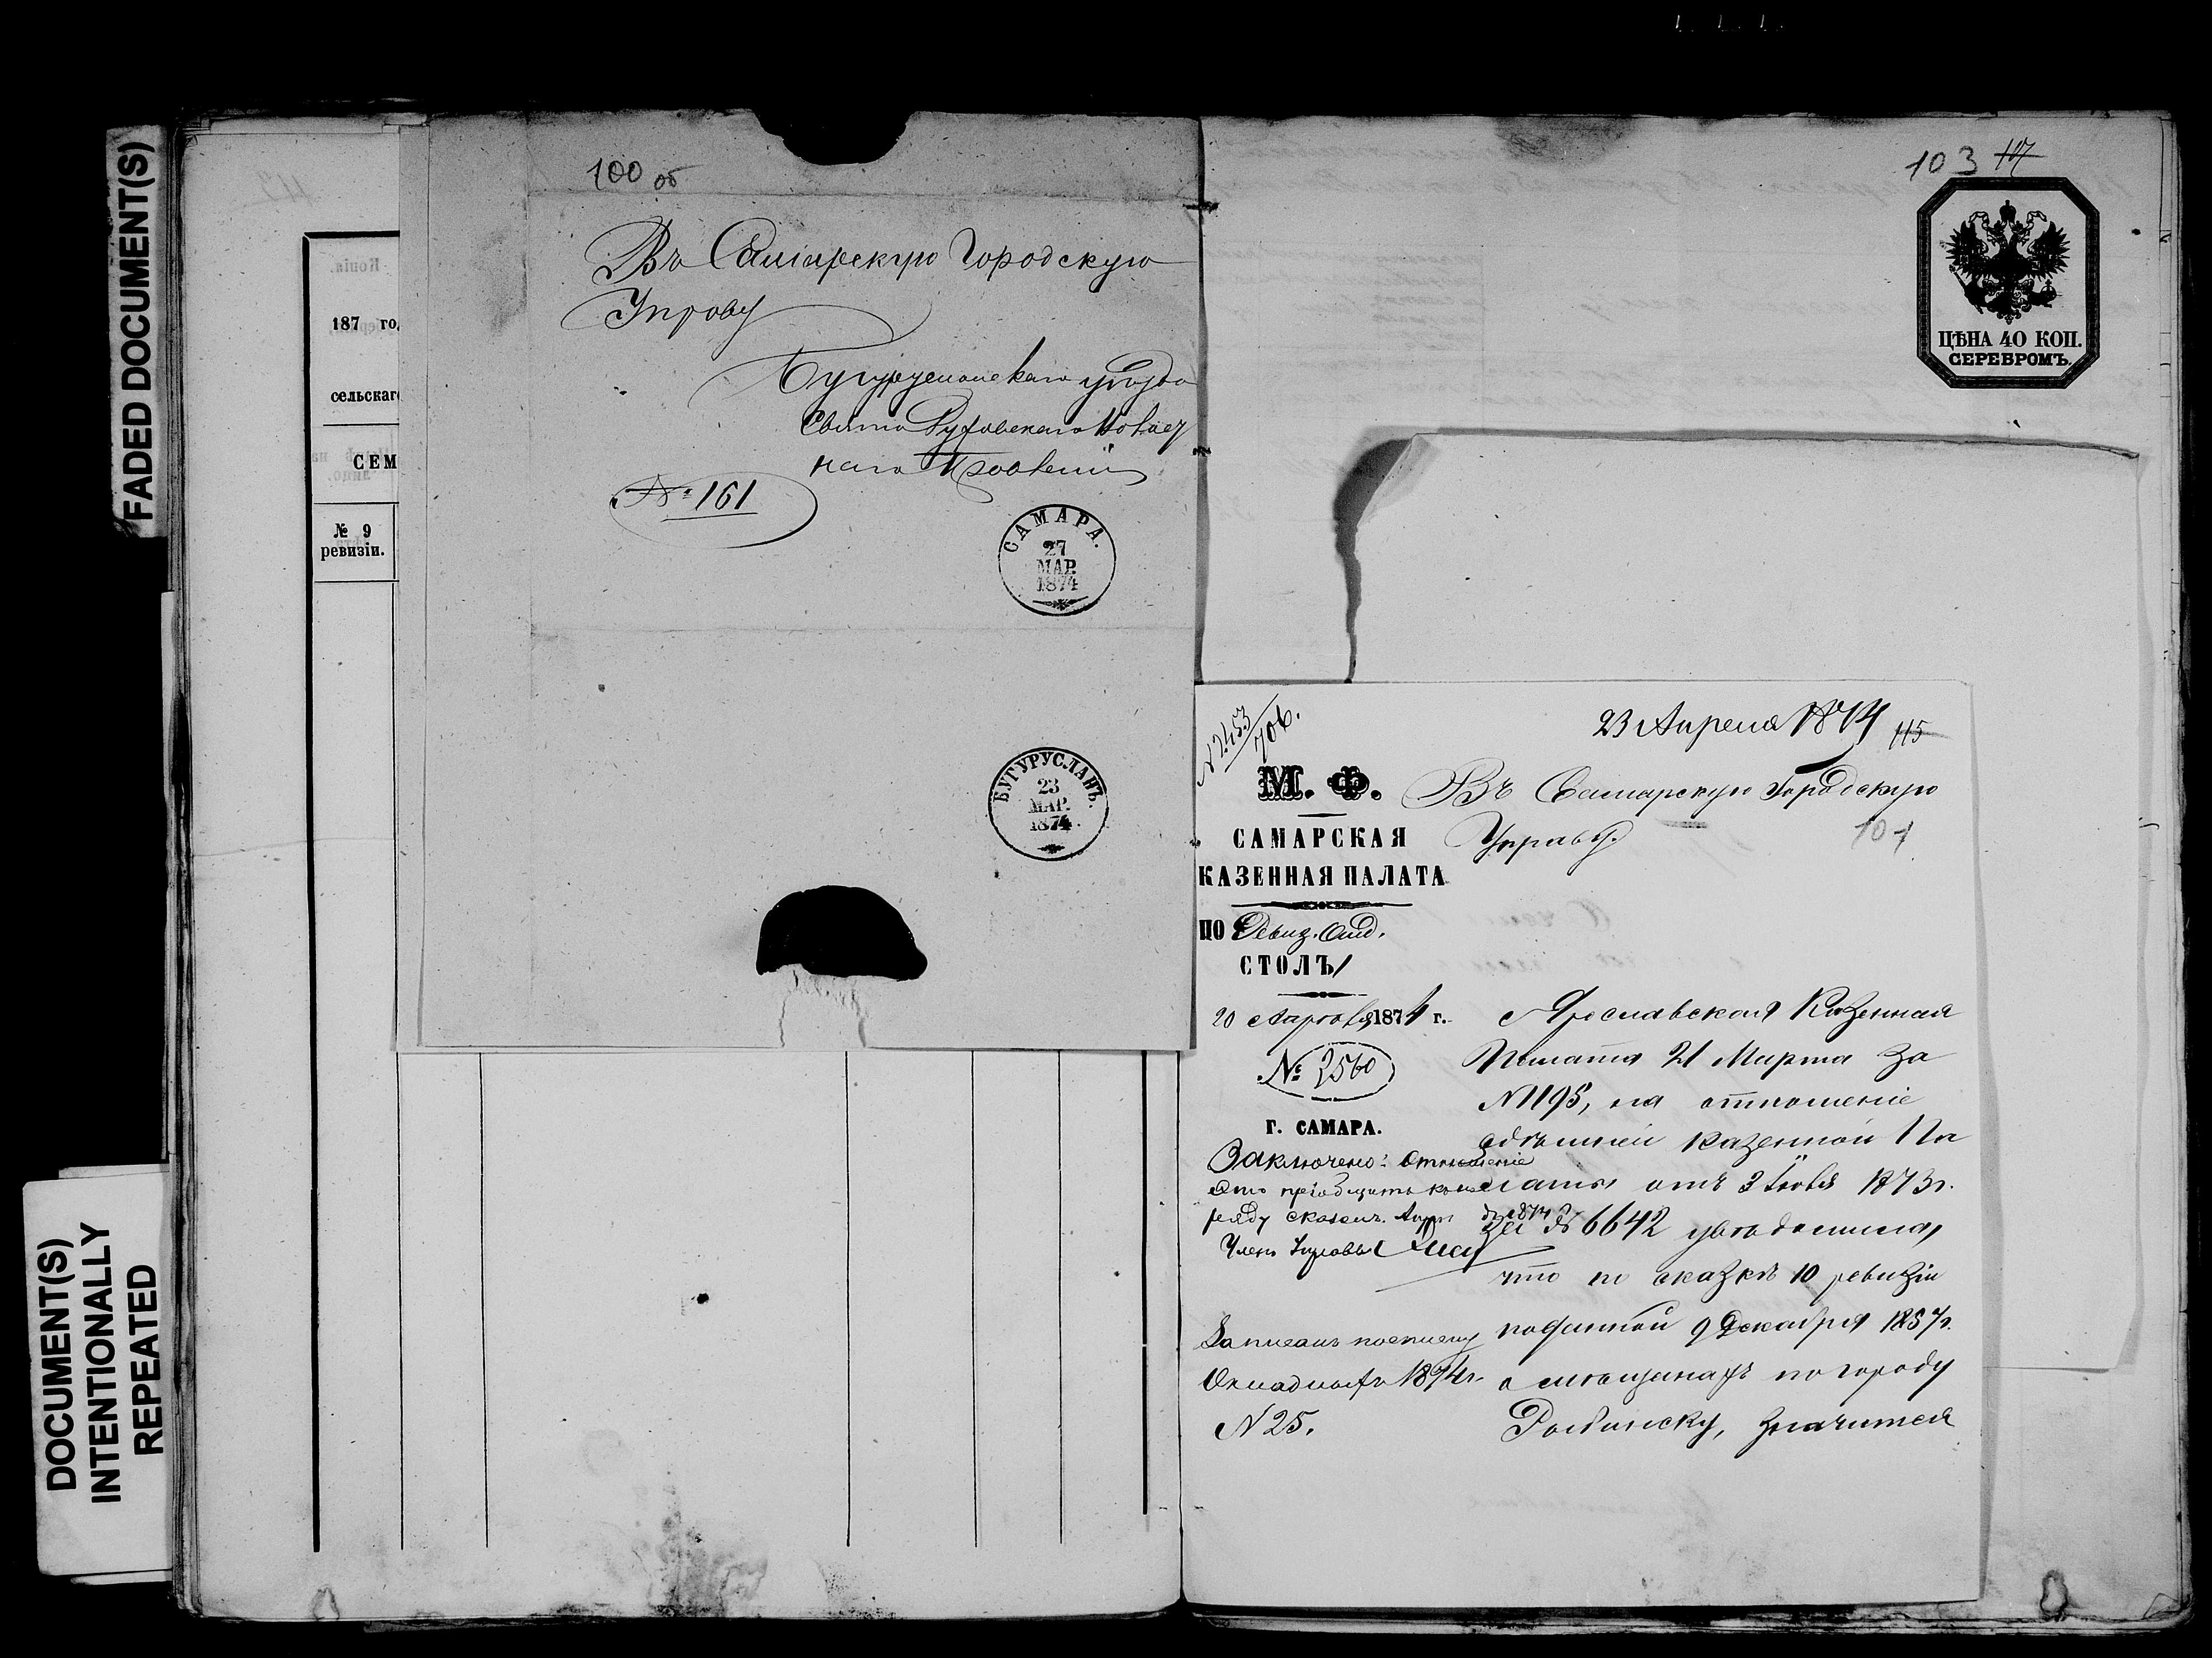 FADED DOCUMENT(S)
DOCUMENT(S)
INTENTIONALLY
REPEATED
187 го
сельскаг
СЕМ
№ 9
ревизіи.
100 об
Въ Самарскую Городскую
Управу
Бугурусланскаго уѣзда
Свято Духовскаго Волост
наго Правленія
№ 161
САМАРА.
27
МАР.
1874
БУГУРУСЛАНЪ.
23
МАР.
1874.
103 107
ЦѢНА 40 КОП.
СЕРЕБРОМЪ.
23 Апреля 1874 115
N 2453
706.
М. Ф.
САМАРСКАЯ
КАЗЕННАЯ ПАЛАТА
ПО Ревиз. Отд.
СТОЛЪ 1
20 Апрѣля 1874 г.
№ 2560
Г. САМАРА.
Заключено: Отношеніе
это пріобщить къ
ряду сказокъ.
Членъ Управы
Записанъ
Окладныхъ 1874 г.
N 25.
Въ Самарскую Городскую
Управу.
104
Ярославская Казенная
Палата 21 Марта за
N 1195, на отношеніе
здѣшней Казенной Па
латы отъ 3 Іюля 1873 г.
за № 6642 увѣдомила,
что по сказкѣ 10 ревизіи
поданной 9 Декабря 1857 г.
о мѣщанахъ по городу
Рыбинску, значится